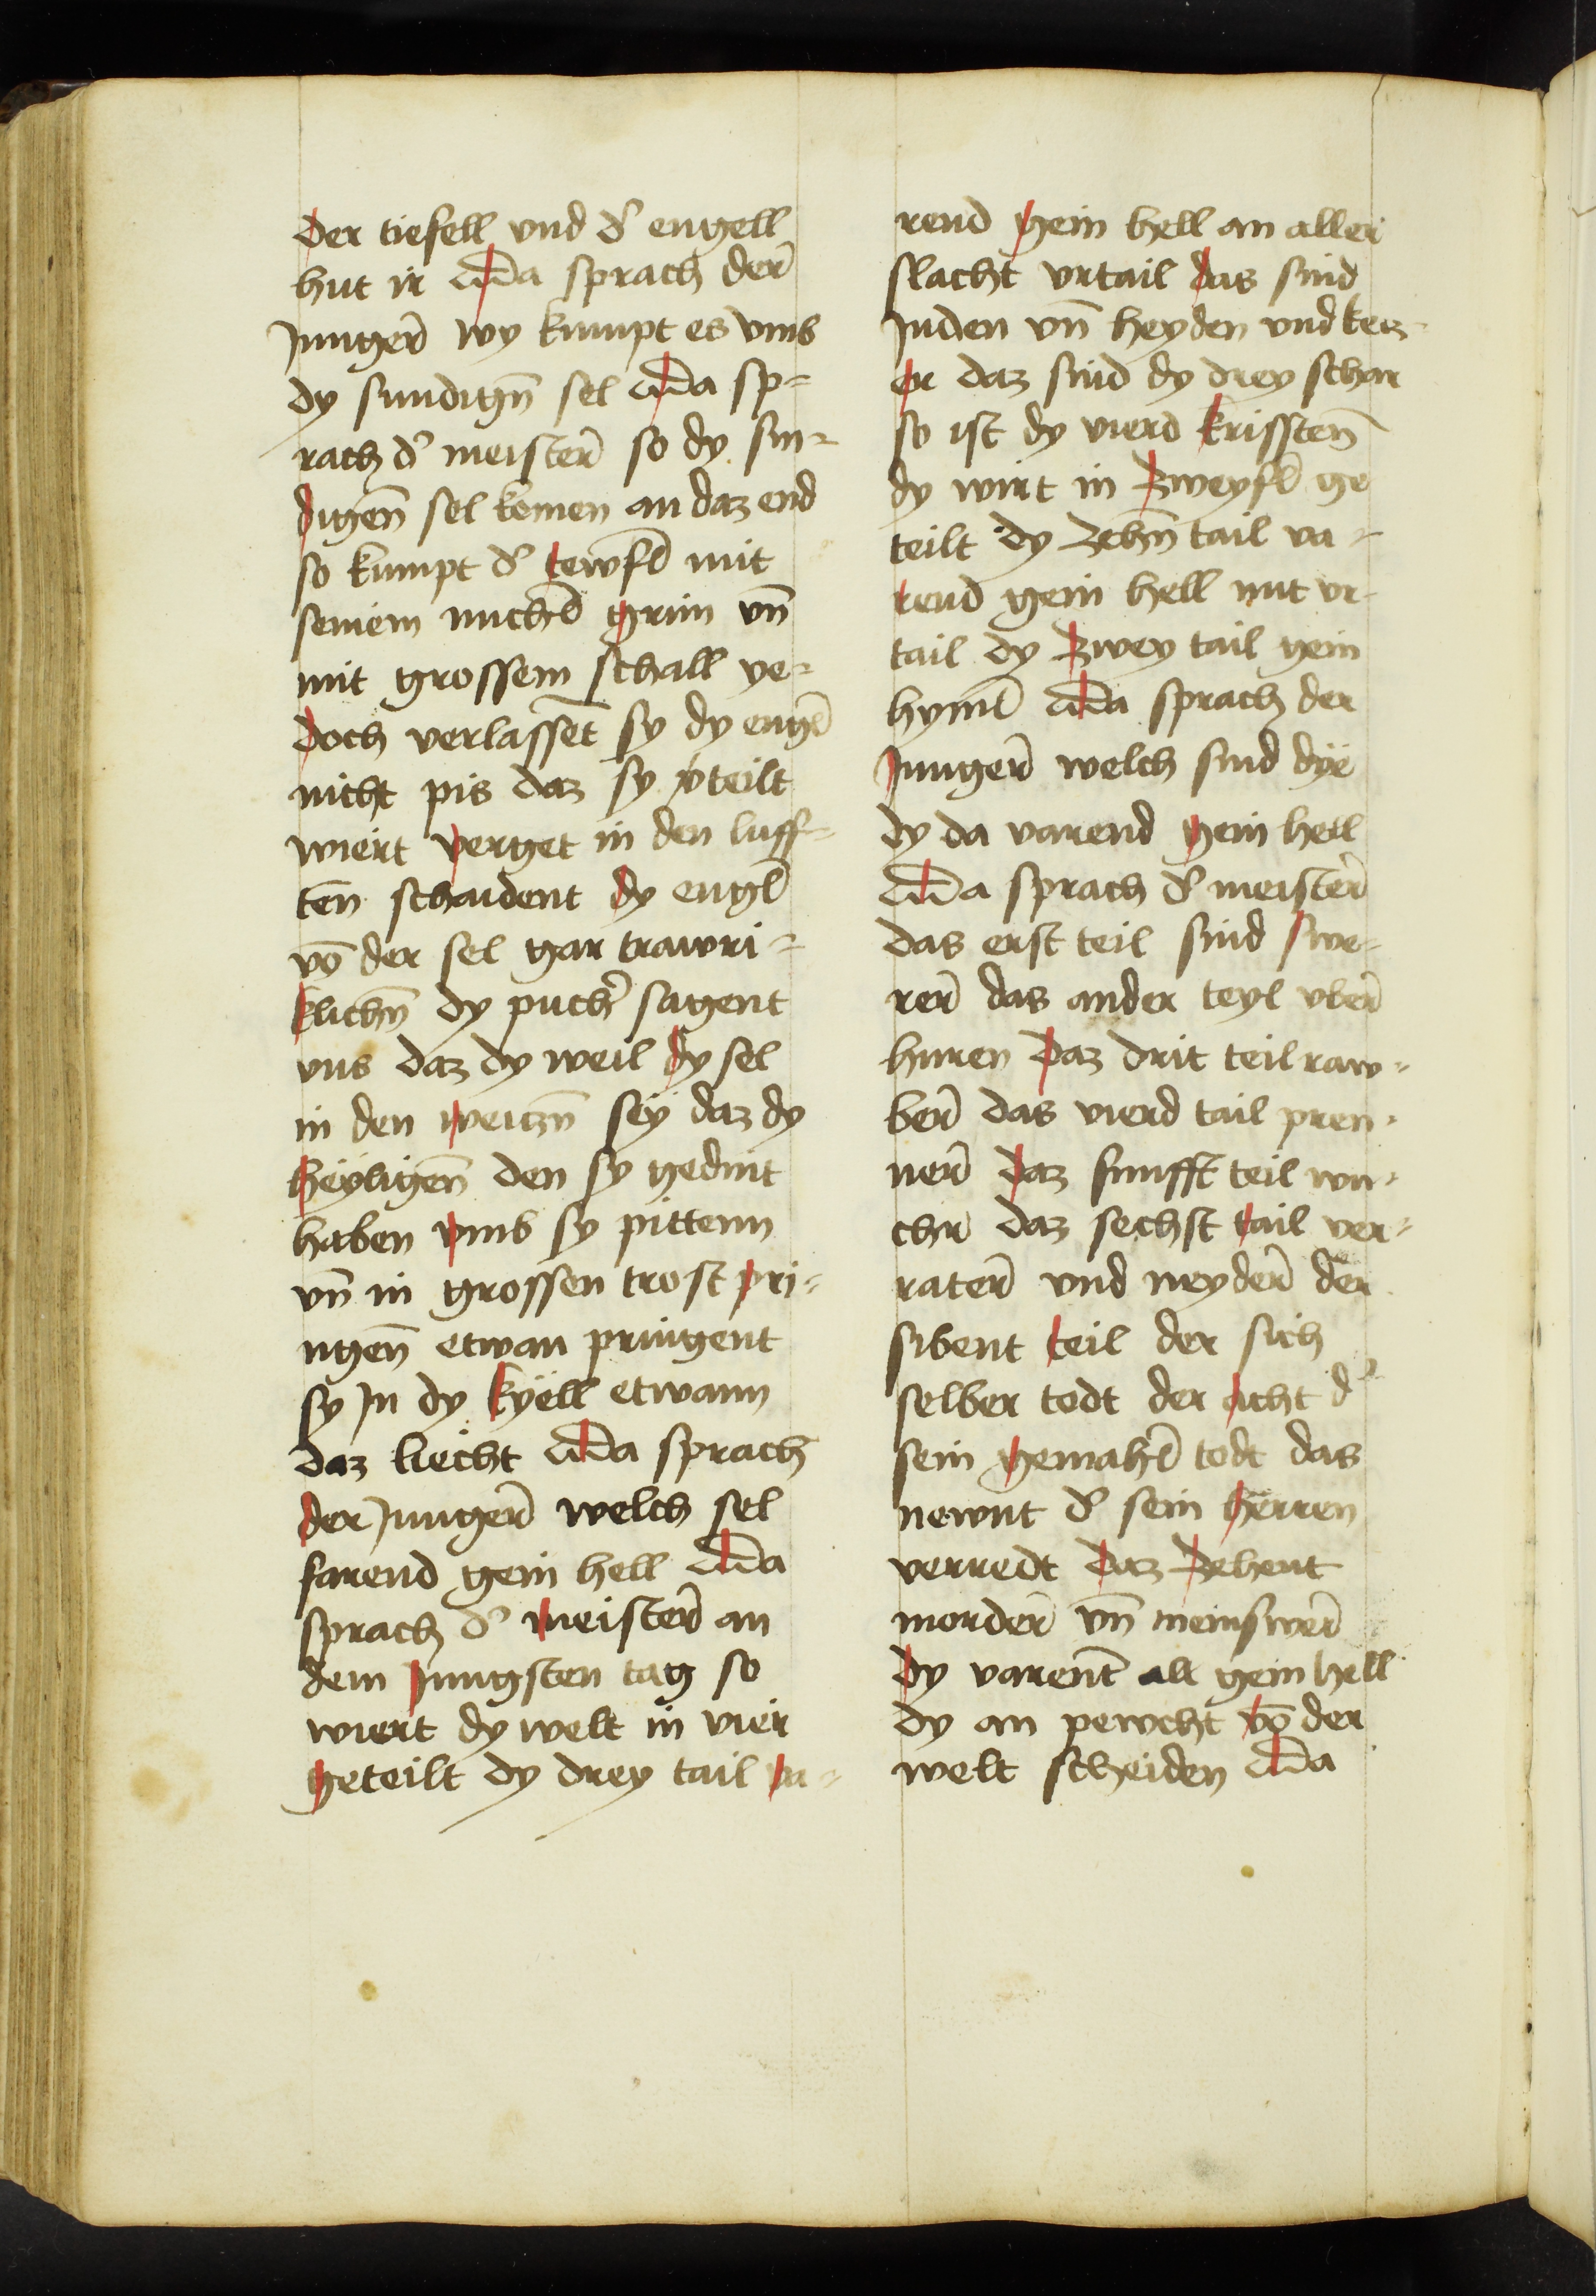 der tiefell vnd d᾽ engell
hut ir Da sprach der̄
Junger̄ wy kumpt es vmb
dy sundign̄ sel Da sp=
rach d᾽ meister̄ so dy sun=
digen̄ sel komen an daz end
so kumpt d᾽ tewfl̄ mit
seinem grim vn̄
mit grossem schall ye=
doch verlasset̄ sy dy engl̄
nicht pis daz sy v᾽teilt
wiert verget in den luff=
ten̄ schaident dy engl̄
vō der sel gar trawri=
klichn̄ dy puch᾽ sagent
vns daz dy weil dy sel
in den weiczn̄ sey daz dy
heyligen̄ den sy gedint
haben vmb sy pittenn
vn̄ in grossen trost pri=
ngen̄ etwan pringent
sy Jn dy kyell etwann
daz liecht Da sprach
der Junger̄ welch sel
farend gein hell Da
sprach d᾽ meister̄ an
dem Jungsten tag so
wiert dy welt in vier
geteilt dy drey tail va=
rend gein hell an aller
slacht vrtail das sind
Juden vn̄ heyden vnd kecz=
er daz sind dy drey schar
so ist dy vierd krissten̄
dy wirt in zweyfl̄ ge
teilt dy zehn̄ tail va=
rend gein hell mit vr=
tail dy zwey tail gein
hyml̄ Da sprach der
Junger̄ welch sind dye
dy da varend gein hell
Da sprach d᾽ meister̄
das erst teil sind swe=
rer̄ das ander teyl vber̄
huren Daz drit teil raw=
ber̄ das vierd tail pren=
ner̄ daz funfft teil wu=
chr̄ daz sechst tail ver=
rater̄ vnd neyder̄ der
sibent teil der sich
selber todt der acht d᾽
sein gemahl̄ todt das
newnt d᾽ sein herren
verredt Daz zehent
morder̄ vn̄ meinswer̄
dy varent̄ all gein hell
dy an pewcht vō der
welt scheiden Da